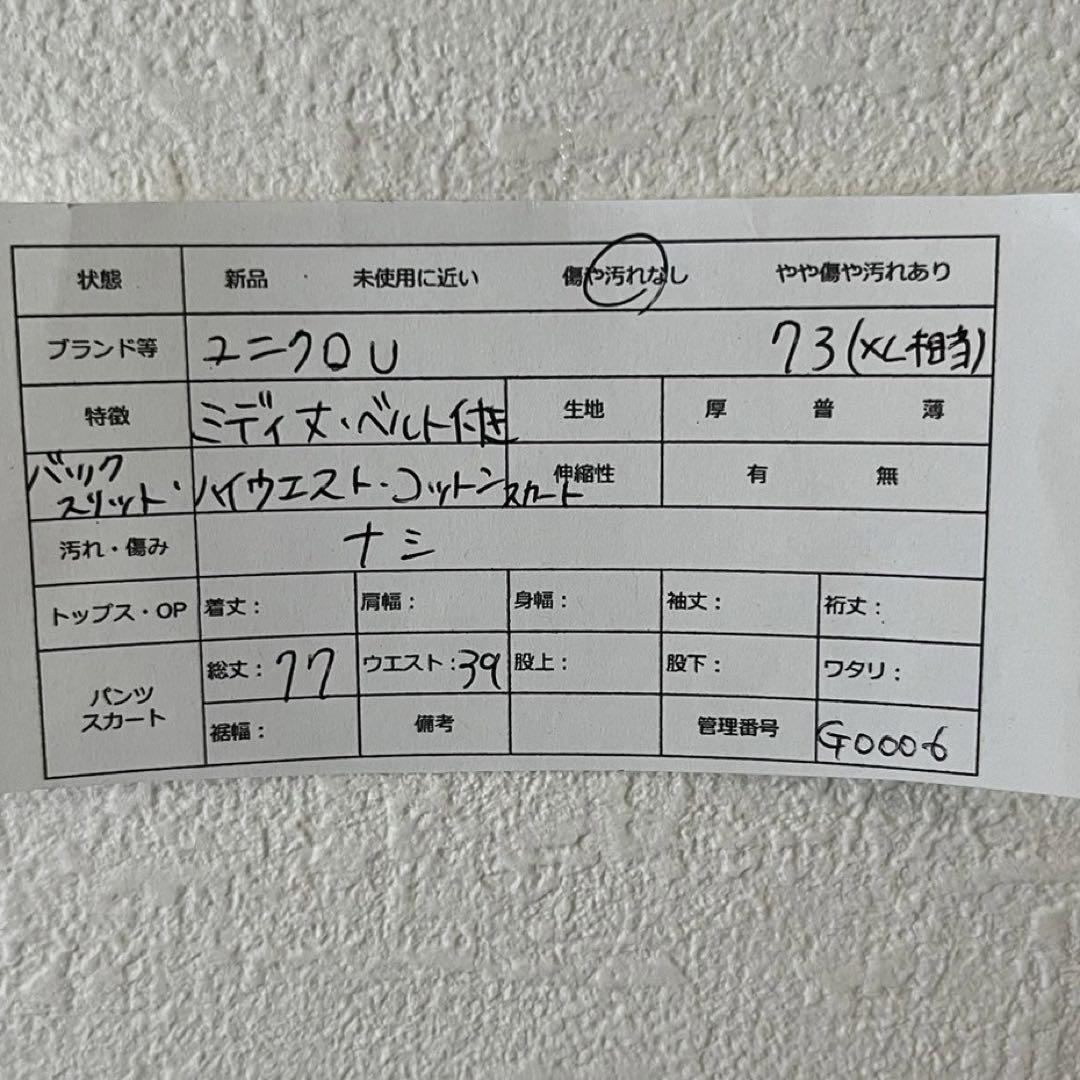 状態 新品 未使用に近い 傷や汚れなし やや傷や汚れあり
ブランド等 ユニクロU 73(XL相当)
特徴 ミディ丈・ベルト付き 生地 厚 普 薄
バックスリット・ハイウエスト・コットンスカート 伸縮性 有 無
汚れ・傷み ナシ
トップス・OP 着丈: 肩幅: 身幅: 袖丈: 裄丈:
パンツ スカート 総丈:77 ウエスト:39 股上: 股下: ワタリ:
裾幅: 備考 管理番号 G0006